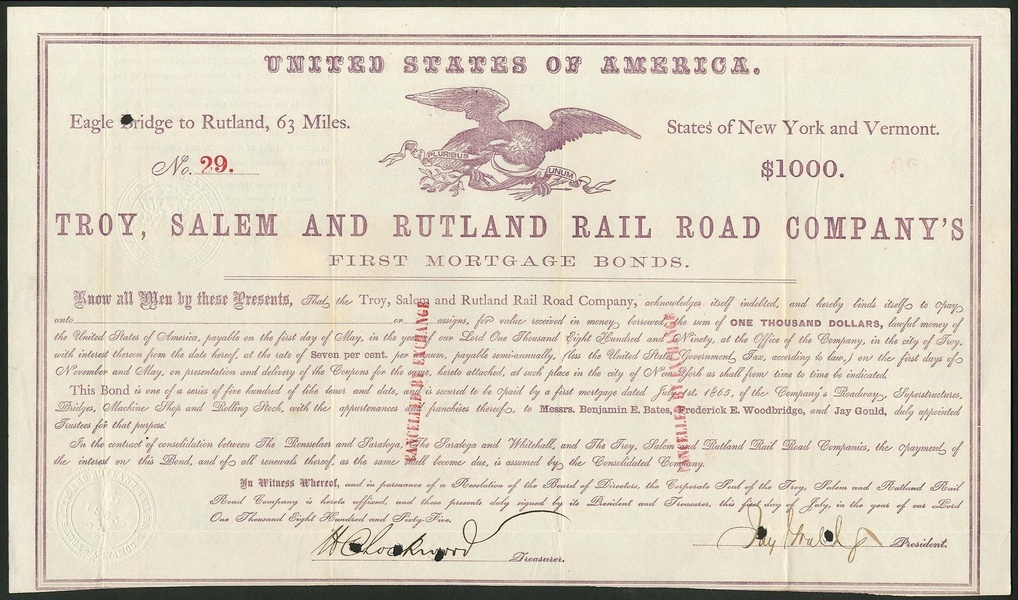 UNITED STATES OF AMERICA.
Eagle Bridge to Rutland, 63 Miles.
PLURIBUS
UNUM
States of New York and Vermont.
No. 29.
$1000.
TROY, SALEM AND RUTLAND RAIL ROAD COMPANY'S
FIRST MORTGAGE BONDS.
Know all Men by these Presents, That the Troy, Salem and Rutland Rail Road Company, acknowledges itself indebted, and hereby binds itself to pay
unto or assigns, for value received in money borrowed, the sum of ONE THOUSAND DOLLARS, lawful money of
the United States of America, payable on the first day of May, in the year of our Lord One Thousand Eight Hundred and Ninety, at the Office of the Company, in the city of Troy,
with interest thereon from the date hereof, at the rate of Seven per cent. per annum, payable semi-annually, (less the United States Government Tax, according to law,) on the first days of
November and May, on presentation and delivery of the Coupons for the same, hereto attached, at such place in the city of New York as shall from time to time be indicated.
This Bond is one of a series of five hundred of like tenor and date, and is secured to be paid by a first mortgage dated July 1st, 1865, of the Company's Roadway, Superstructures,
Bridges, Machine Shop and Rolling Stock, with the appurtenances and franchises thereof, to Messrs. Benjamin E. Bates, Frederick E. Woodbridge, and Jay Gould, duly appointed
Trustees for that purpose.
In the contract of consolidation between The Rensselaer and Saratoga, The Saratoga and Whitehall, and The Troy, Salem and Rutland Rail Road Companies, the payment of
the interest on this Bond, and of all renewals thereof, as the same shall become due, is assumed by the Consolidated Company.
In Witness Whereof, and in pursuance of a Resolution of the Board of Directors, the Corporate Seal of the Troy, Salem and Rutland Rail
Road Company is hereto affixed, and these presents duly signed by its President and Treasurer, this first day of July, in the year of our Lord
One Thousand Eight Hundred and Sixty-Five.
H C Lockwood Treasurer.
Jay Gould President.
CANCELLED BY EXCHANGE
CANCELLED BY EXCHANGE